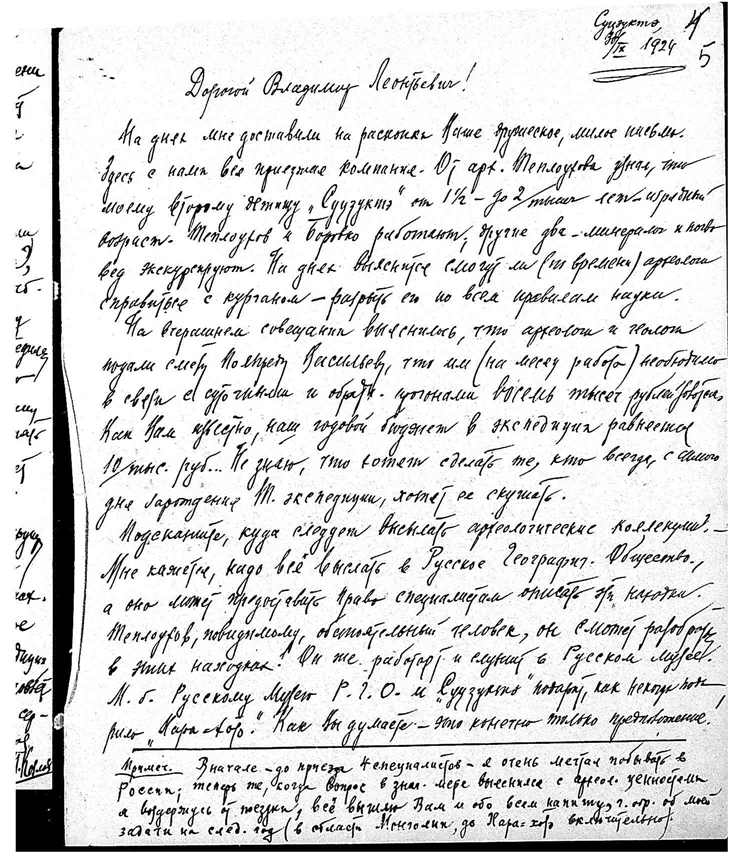 Суцзуктэ,
30/IX 1924
4
5
Дорогой Владимир Леонтьевич!
На днях мне доставили на раскопки Ваше дружеское, милое письмо.
Здесь с нами вся приезжая компания. От арх. Теплоухова узнал, что
моему второму детищу „Суцзуктэ" от 1½ – до 2 тысяч лет –
возраст. Теплоухов и Боровко работают, другие два – минералог и почво
вед экскурсируют. На днях выяснится смогут ли (по времени) археологи
справиться с курганом – разрыть его по всем правилам науки.
На вчерашнем совещании выяснилось, что археологи и геологи
подали смету Полпреду Васильеву, что им (на месяц работы) необходимо
в связи с суточными и обратн. прогонами восемь тысяч рублей
Как Вам известно, наш годовой бюджет в экспедиции равняется
10 тыс. руб... Не знаю, что хотят сделать те, кто всегда, с самого
дня зарождения М. экспедиции, хотят ее скушать.
Подскажите, куда следует высылать археологические коллекции? –
Мне кажется, надо всё выслать в Русское Географич. Общество,
а оно может предоставить право специалистам описать эти находки.
Теплоухов, повидимому, обстоятельный человек, он сможет разобраться
в этих находках! Он же работает и служит в Русском музее.
М. б. Русскому Музею Р.Г.О. и „Суцзуктэ" подарит, как некогда пода
рило „Хара-Хото". Как Вы думаете – это конечно только предположение!
Примеч. Вначале – до приезда 4 специалистов – я очень мечтал побывать в
России; теперь же, когда вопрос в знач. мере выяснился с археол. ценностями
я воздержусь от поездки, всё вышлю Вам и обо всем напишу, г. обр. об моей
задачи на след. год (в области Монголии, до Хара-хото включительно).